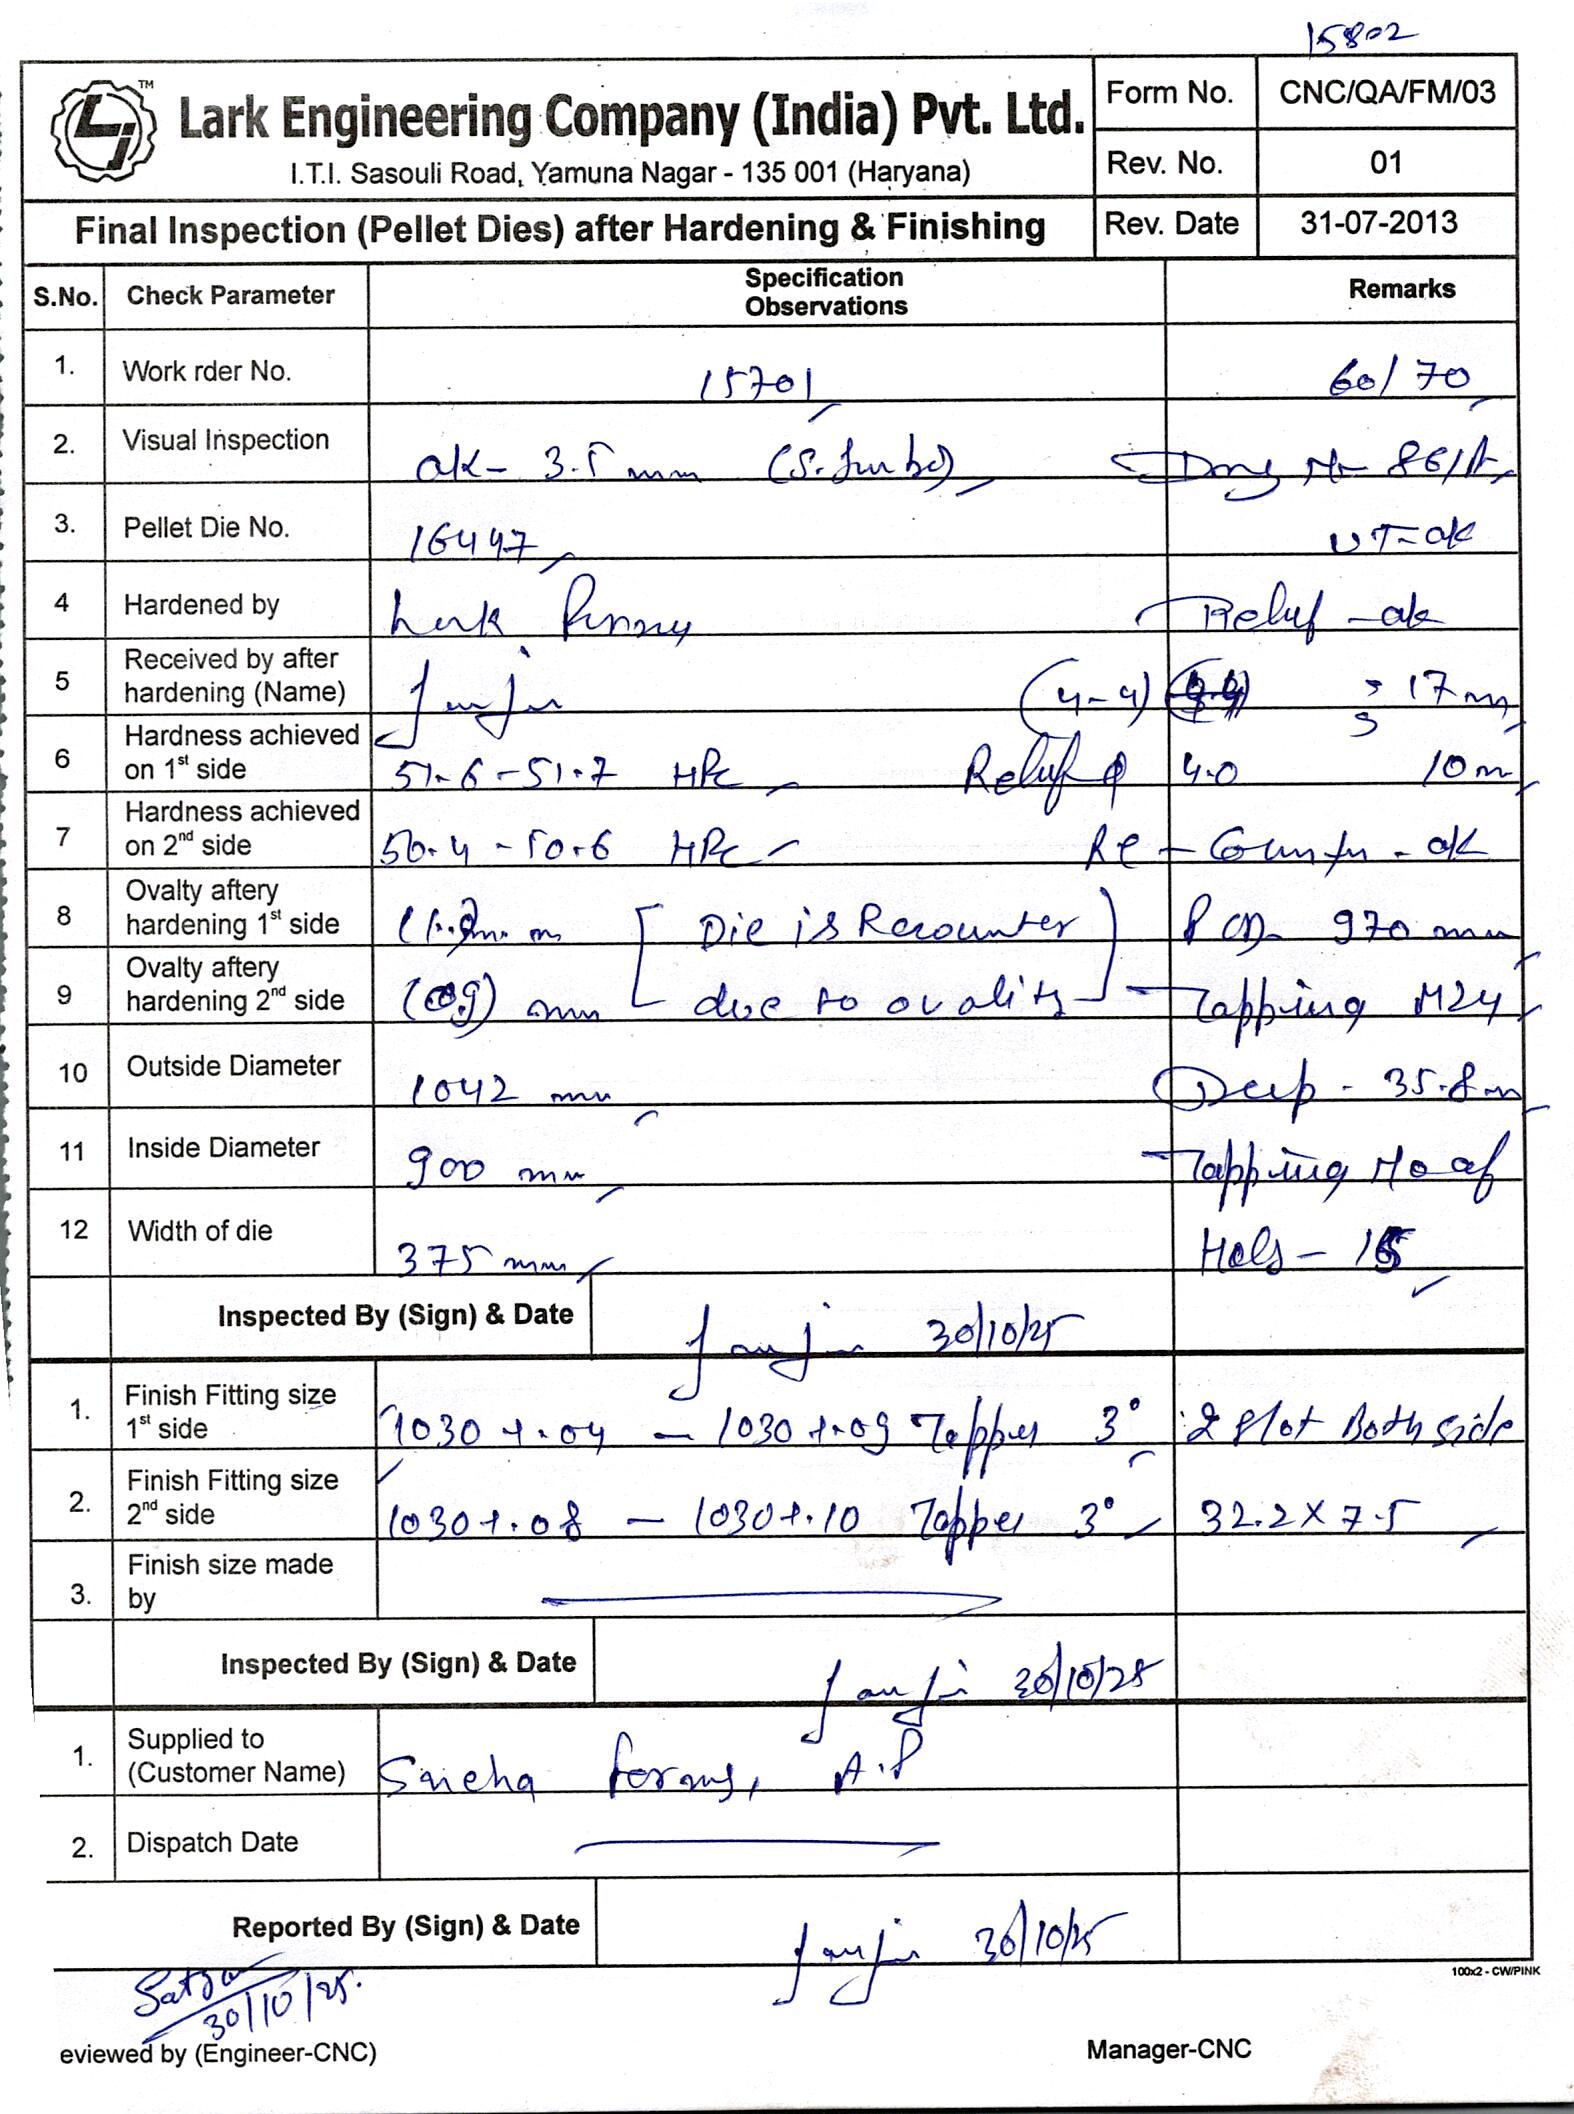 15802
TM
Lark Engineering Company (India) Pvt. Ltd.
I.T.I. Sasouli Road, Yamuna Nagar - 135 001 (Haryana)
Form No. CNC/QA/FM/03
Rev. No. 01
Final Inspection (Pellet Dies) after Hardening & Finishing
Rev. Date 31-07-2013
S.No. Check Parameter Specification Observations Remarks
1. Work rder No. 15701 60/70
2. Visual Inspection ok - 3.5 mm 86/A
3. Pellet Die No. 16447 UT-ok
4 Hardened by Lark Relief - ok
5 Received by after hardening (Name) (4-4) 17 m
6 Hardness achieved on 1st side 51.6 - 51.7 HRC Relief φ 4.0 10 m
7 Hardness achieved on 2nd side 50.4 - 50.6 HRC Re - Counter - ok
8 Ovalty aftery hardening 1st side mm [Die is Recounter PCD 970 mm
9 Ovalty aftery hardening 2nd side mm due to ovality] Tapping M24
10 Outside Diameter 1042 mm Deep - 35.8 m
11 Inside Diameter 900 mm Tapping No of
12 Width of die 375 mm Hols -
Inspected By (Sign) & Date 30/10/25
1. Finish Fitting size 1st side 1030 +.04 - 1030 +.09 Tapper 3° 2 slot Both side
2. Finish Fitting size 2nd side 1030 +.08 - 1030 +.10 Tapper 3° 32.2 X 7.5
3. Finish size made by
Inspected By (Sign) & Date 30/10/25
1. Supplied to (Customer Name) Sneha Forms, A.P
2. Dispatch Date
Reported By (Sign) & Date 30/10/25
100x2 - CW/PINK
30/10/25.
eviewed by (Engineer-CNC) Manager-CNC